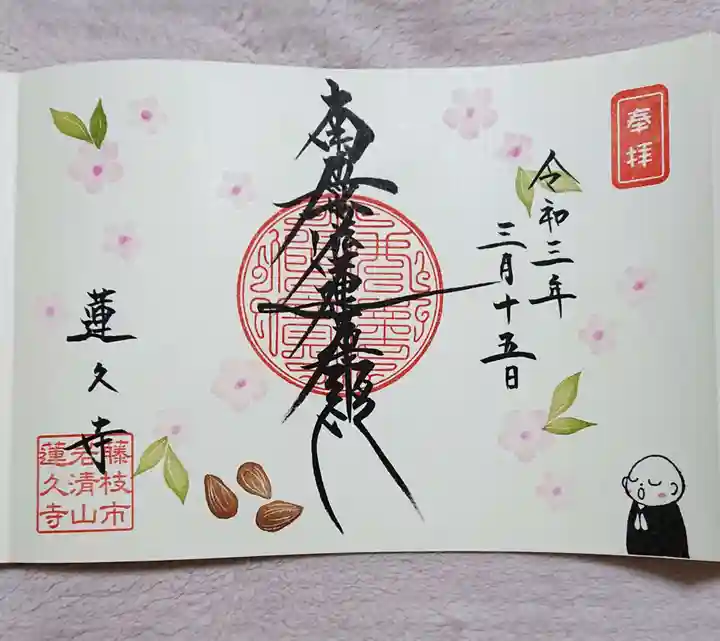 奉拝
令和三年
三月十五日
南無妙法蓮華経
蓮久寺
藤枝市
清山
蓮久寺